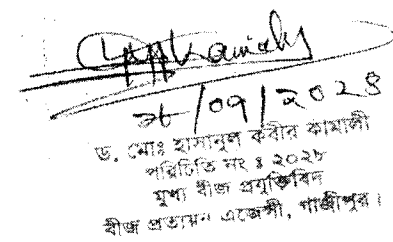 /০৭/২০২৪
ড. মোঃ হাসানুল কবীর কামালী
পরিচিতি নং ঃ ২০২৮
মুখ্য বীজ প্রযুক্তিবিদ
বীজ প্রত্যয়ন এজেন্সী, গাজীপুর।